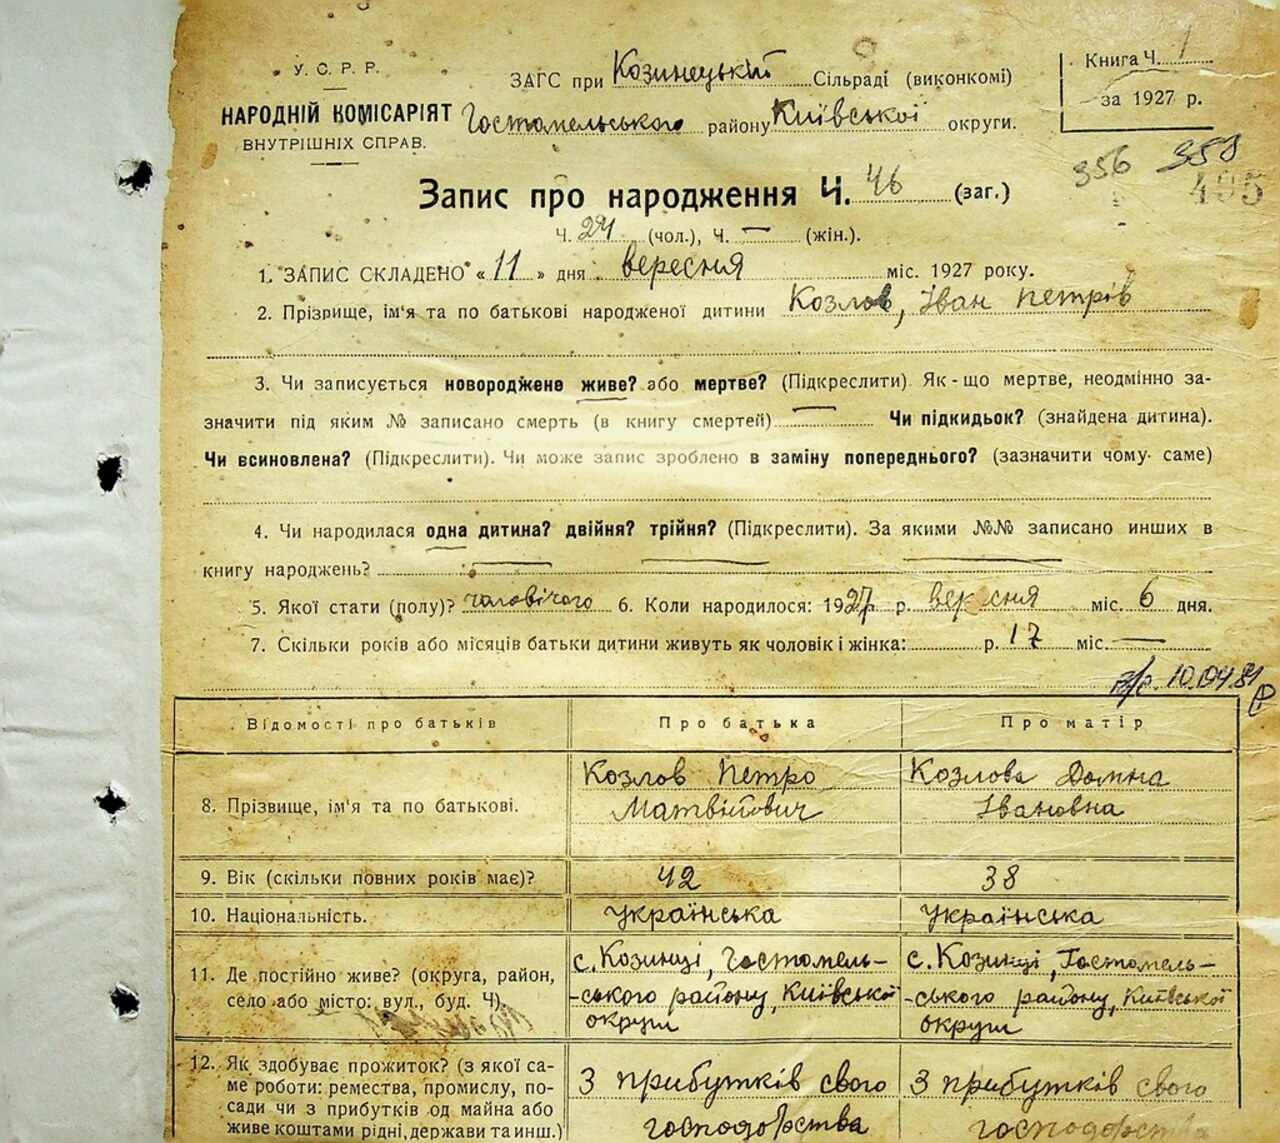 У. С. Р. Р.
НАРОДНІЙ КОМІСАРІЯТ
ВНУТРІШНІХ СПРАВ.
ЗАГС при Козинецькій Сільраді (виконкомі)
Гостомельського району Київської округи.
Книга Ч. 1
за 1927 р.
356 358
495
Запис про народження Ч. 46 (заг.)
Ч. 24 (чол.), Ч. — (жін.).
1. ЗАПИС СКЛАДЕНО « 11 » дня вересня міс. 1927 року.
2. Прізвище, ім'я та по батькові народженої дитини Козлов, Іван Петрів
3. Чи записується новороджене живе? або мертве? (Підкреслити). Як-що мертве, неодмінно за-
значити під яким № записано смерть (в книгу смертей) — Чи підкидьок? (знайдена дитина).
Чи всиновлена? (Підкреслити). Чи може запис зроблено в заміну попереднього? (зазначити чому саме)
4. Чи народилася одна дитина? двійня? трійня? (Підкреслити). За якими №№ записано инших в
книгу народжень?
5. Якої стати (полу)? чоловічого 6. Коли народилося: 1927 р. вересня міс. 6 дня.
7. Скільки років або місяців батьки дитини живуть як чоловік і жінка: р. 17 міс. —
10.04.81
Відомості про батьків Про батька Про матір
8. Прізвище, ім'я та по батькові. Козлов Петро Козлова Домна
Матвійович Івановна
9. Вік (скільки повних років має)? 42 38
10. Національність. Українська Українська
11. Де постійно живе? (округа, район, с. Козинці, Гостомель- с. Козинці, Гостомель-
село або місто: вул., буд. Ч). -ського району, Київської -ського району, Київської
округи округи
12. Як здобуває прожиток? (з якої са- З прибутків свого З прибутків свого
ме роботи: ремества, промислу, по-
сади чи з прибутків од майна або господорства господорства
живе коштами рідні, держави та инш.)